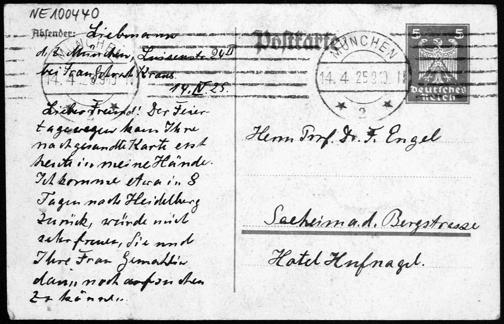 NE100440
Absender: Liebmann
d. Z. München, Luisenstr.
bei Frau Kraus.
14. IV 25.
Postkarte
MÜNCHEN
14. 4. 25
2
5 5
Deutsches
Reich
Lieber Freund! Der Feier-
tage wegen kam Ihre
nachgesandte Karte erst
heute in meine Hände.
Ich komme etwa in 8
Tagen nach Heidelberg
zurück, würde mich
sehr freuen, Sie und
Ihre Frau Gemahlin
dann noch aufsuchen
zu können.
Herrn Prof. Dr. F. Engel
Seeheim a. d. Bergstrasse
Hotel Hufnagel.